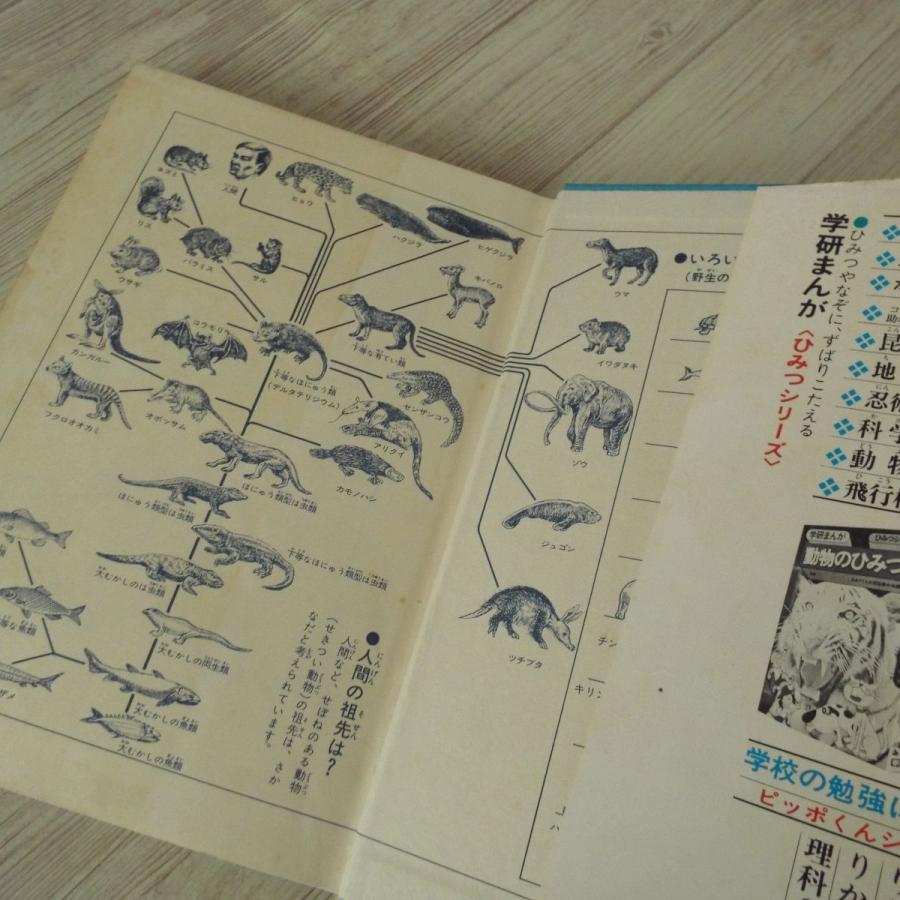 ネズミ
人間
ヒョウ
ハクジラ
ヒゲクジラ
リス
パラミス
サル
キバノロ
ウサギ
コウモリ
カンガルー
下等な有てい類
下等なほにゅう類
(デルタテリジウム)
センザンコウ
フクロオオカミ
オポッサム
アリクイ
カモノハシ
ほにゅう類型は虫類
ほにゅう類型は虫類
下等なほにゅう類型は虫類
大むかしのは虫類
大むかしの両生類
大むかしの魚類
大むかしの魚類
等な魚類
ザメ
●人間の祖先は?
人間など、せぼねのある動物
(せきつい動物)の祖先は、さか
なだと考えられています。
ウマ
イワダヌキ
ゾウ
ジュゴン
ツチブタ
●いろい
(野生の
チン
キリン
●ひみつやなぞに、ずばりこたえる
学研まんが〈ひみつシリーズ〉
昆
地
忍術
科学
動物
飛行機
学研まんが
動物のひみつ
学校の勉強に
ピッポくんシ
りか
理科